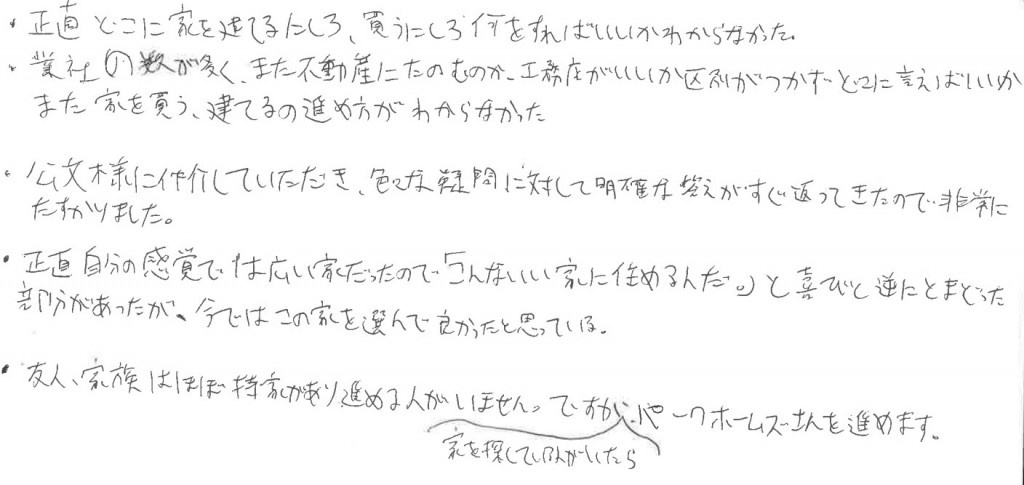 ・正直どこに家を建てるにしろ、買うにしろ何をすればいいかわからなかった。
・業社の数が多く、また不動産にたのむのか、工務店がいいか区別がつかずどこに言えばいいか
また家を買う、建てるの進め方がわからなかった
・公文様に仲介していただき、色々な疑問に対して明確な答えがすぐ返ってきたので非常に
たすかりました。
・正直自分の感覚では広い家だったので「こんないい家に住めるんだ。」と喜びと逆にとまどった
部分があったが、今ではこの家を選んで良かったと思っている。
・友人、家族はほぼ持家があり進める人がいません。ですが、パークホームズさんを進めます。
家を探している人がいたら